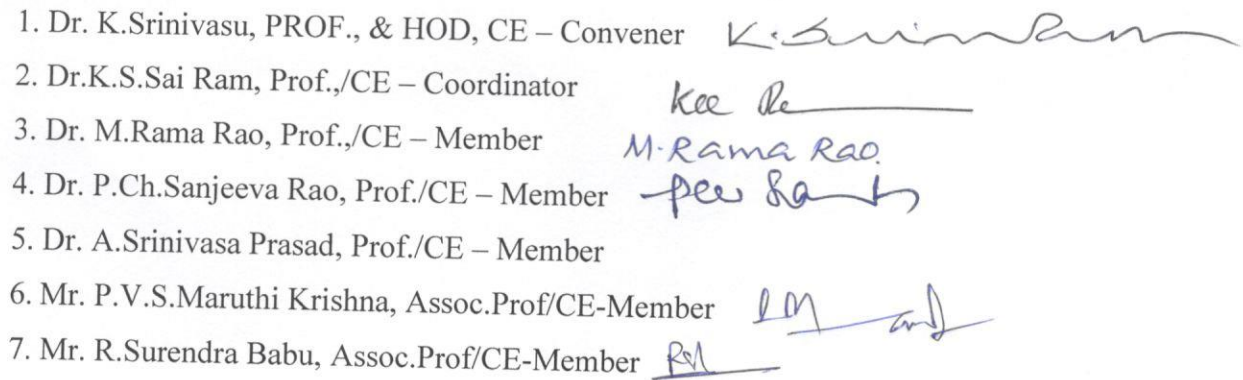 1. Dr. K.Srinivasu, PROF., & HOD, CE – Convener
2. Dr.K.S.Sai Ram, Prof.,/CE – Coordinator
3. Dr. M.Rama Rao, Prof.,/CE – Member M.Rama Rao.
4. Dr. P.Ch.Sanjeeva Rao, Prof./CE – Member
5. Dr. A.Srinivasa Prasad, Prof./CE – Member
6. Mr. P.V.S.Maruthi Krishna, Assoc.Prof/CE-Member
7. Mr. R.Surendra Babu, Assoc.Prof/CE-Member